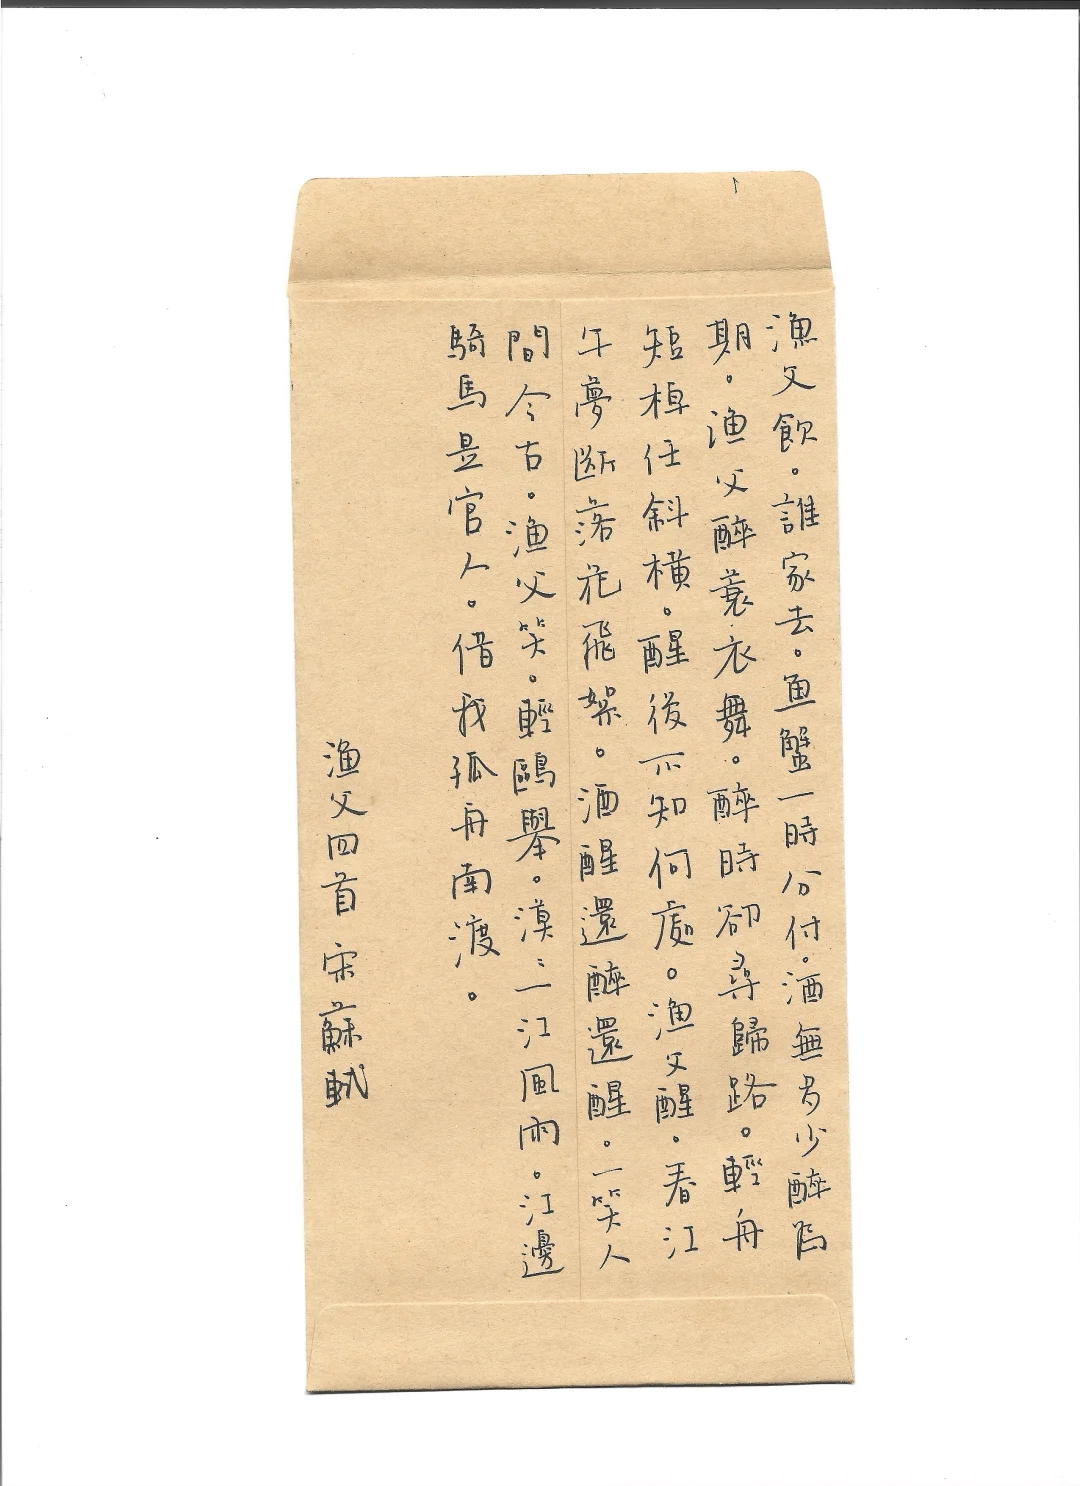 漁父飲。誰家去。魚蟹一時分付。酒無多少醉為
期。漁父醉蓑衣舞。醉時卻尋歸路。輕舟
短棹任斜橫。醒後不知何處。漁父醒。春江
午夢斷落花飛絮。酒醒還醉還醒。一笑人
間今古。漁父笑。輕鷗舉。漠〻一江風雨。江邊
騎馬是官人。借我孤舟南渡。
漁父四首 宋蘇軾